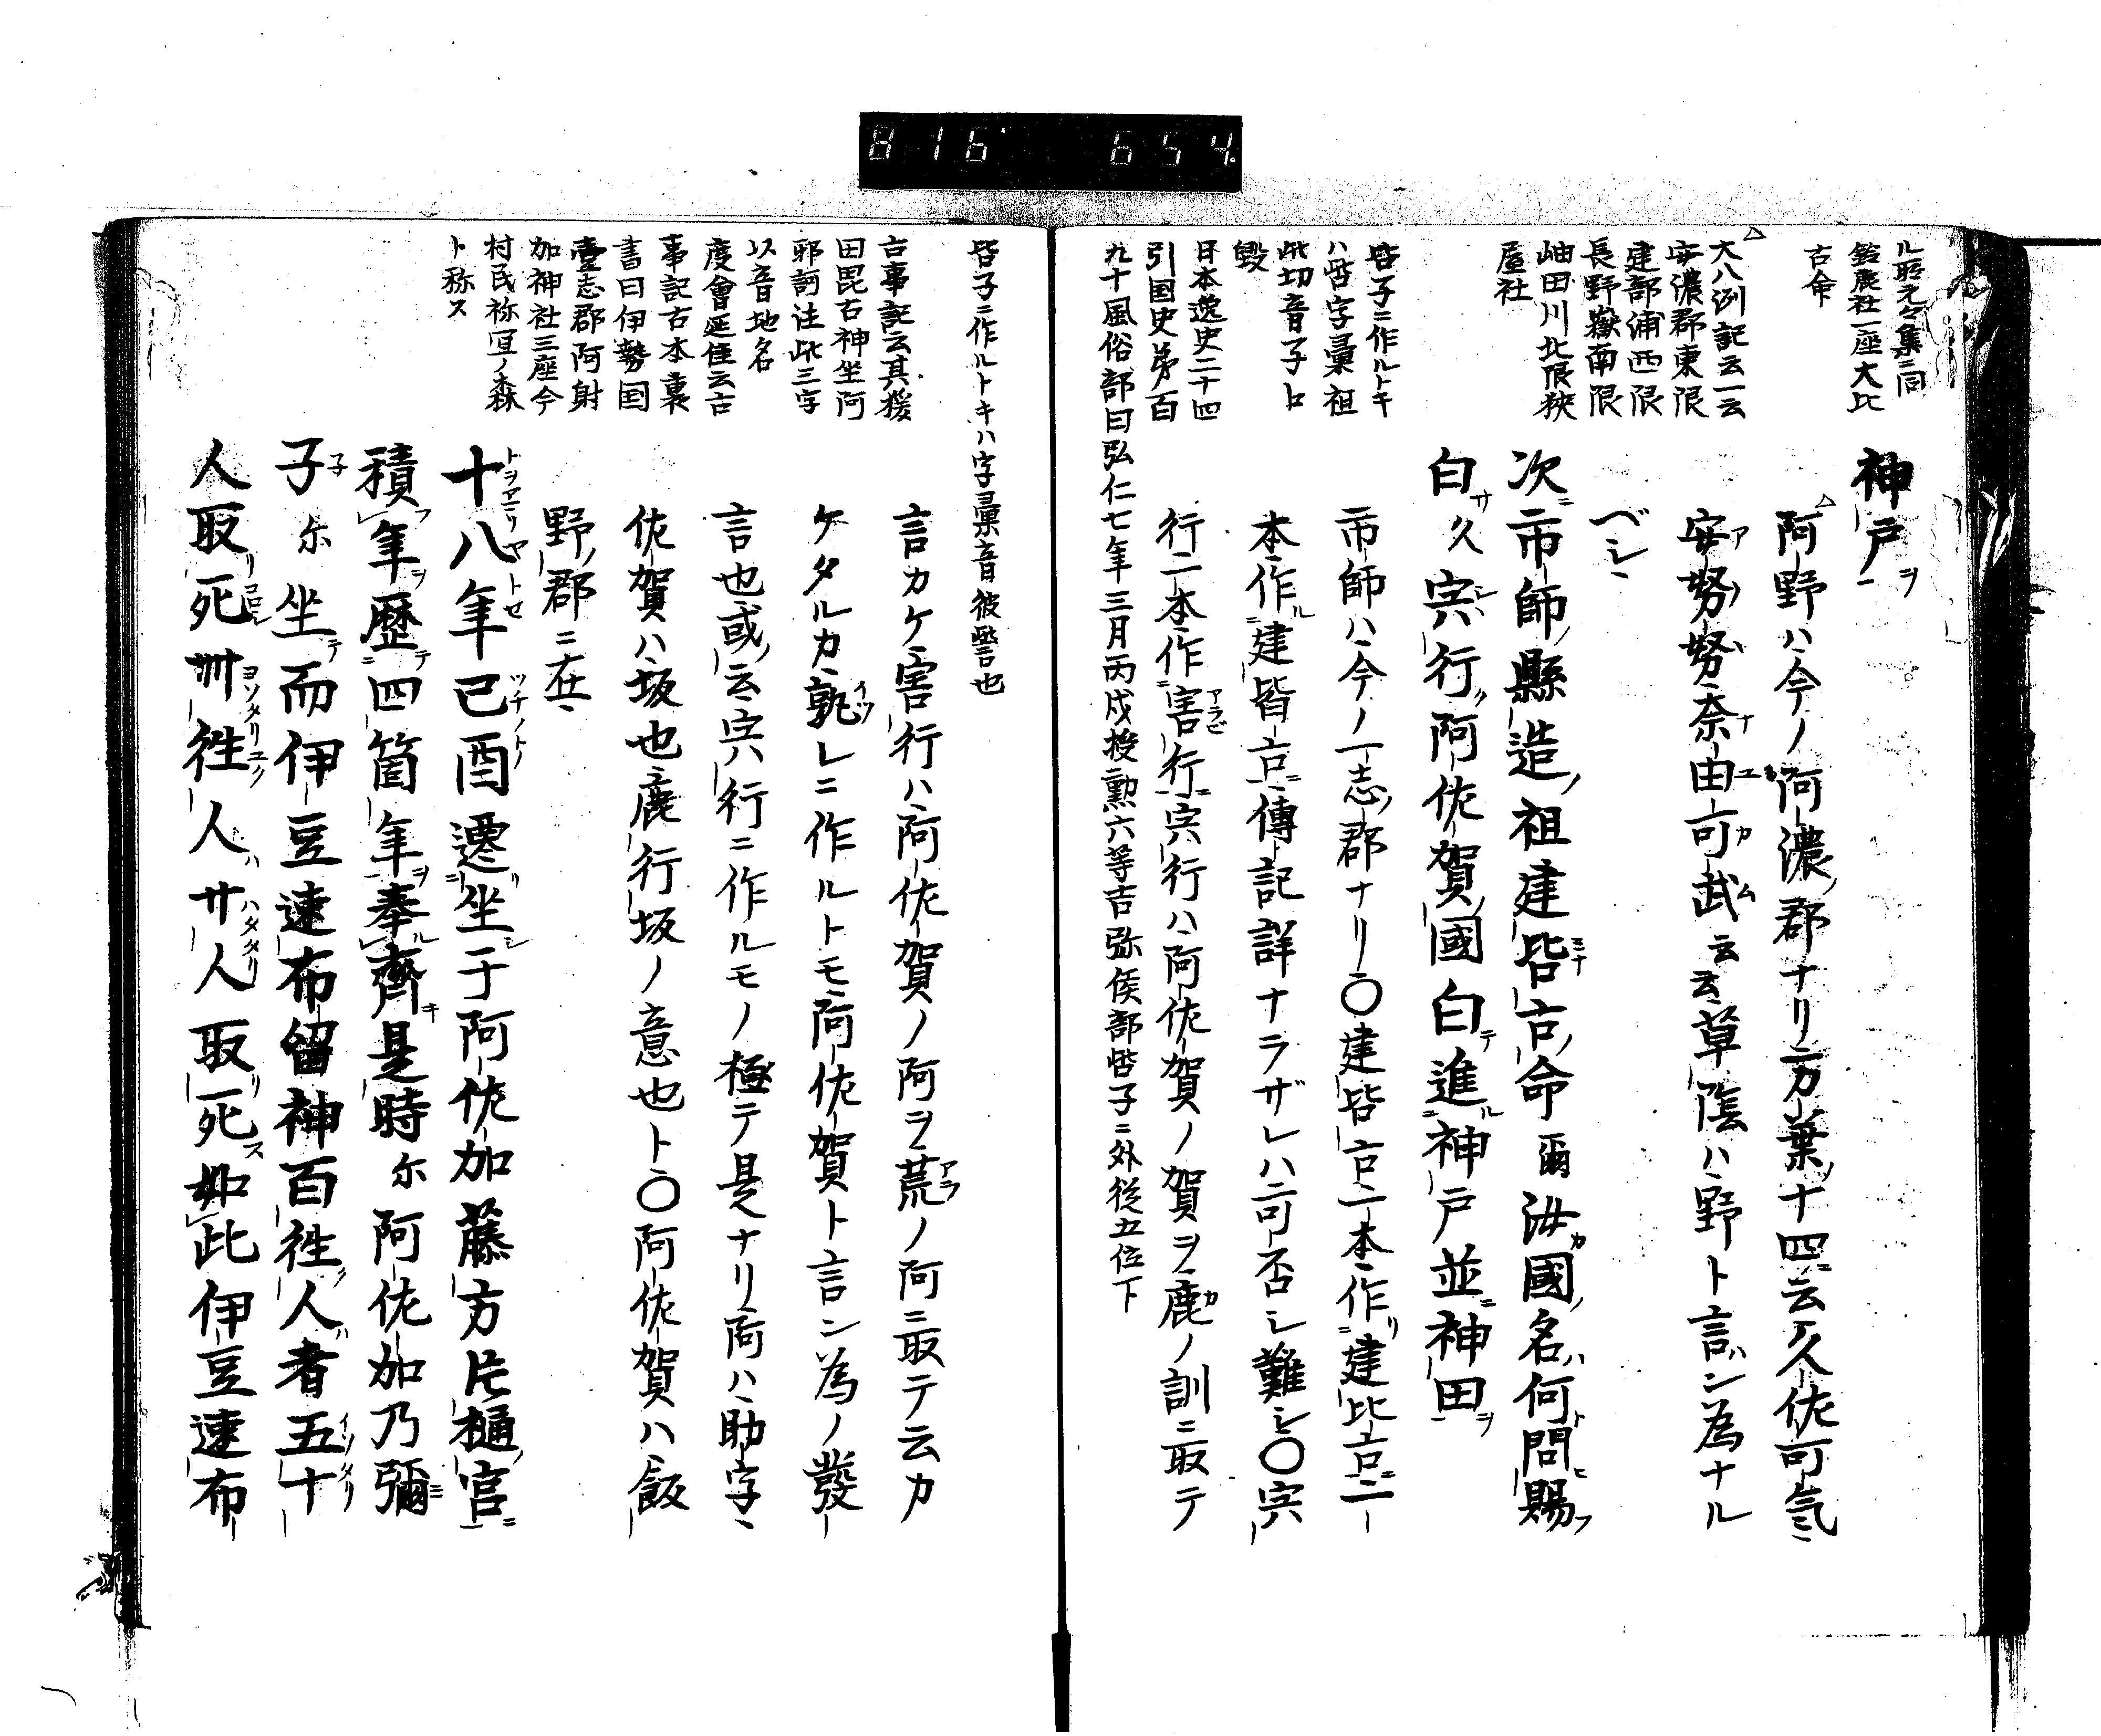 816 654
ル昭元々集ニ同
鈴鹿社一座大比
古命
大八洲記云一云
安濃郡東限
建部浦西限
長野嶽南限
岫田川北限狹
屋社
呰子ニ作ルトキ
ハ呰字彙祖
此切音子ト
毀
日本逸史二十四
引国史第百
九十風俗部曰弘仁七年三月丙戌授勲六等吉弥侯部呰子ニ外従五位下
神戸ヲ
阿野ハ今ノ阿濃郡ナリ万葉ノ十四ニ云久佐可気ニ
安努努奈由可武云云草陰ハ野ト言ハン為ナル
ベシ
次ニ市師ノ縣造ノ祖建呰古ノ命爾汝カ國ノ名ハ何ト問ヒ賜フ
白サク宍行阿佐賀國白テ進ル神戸並ニ神田ヲ
市師ハ今ノ一志ノ郡ナリ〇建呰古一本作リ建比古ニ一
本作ル建皆古ニ傳記詳ナラザレハ可否シ難シ〇宍
行一本作ニ害行ニ宍行ハ阿佐賀ノ賀ヲ鹿ノ訓ニ取テ
呰子ニ作ルトキハ字彙音彼訾也
古事記云其猨
田毘古神坐阿
邪訶注此三字
以音地名
度會延佳云古
事記古本裏
書曰伊勢国
壹志郡阿射
加神社三座今
村民祢宜ノ森
ト称ス
言カケ害行ハ阿佐賀ノ阿ヲ荒ノ阿ニ取テ云カ
ケタルカ孰レニ作ルトモ阿佐賀ト言ン為ノ發
言也或ノ云宍行ニ作ルモノ極テ是ナリ阿ハ助字
佐賀ハ坂也鹿行坂ノ意也ト〇阿佐賀ハ飯
野ノ郡ニ在
十八年己酉遷リ坐シ于阿佐加藤方片樋ノ宮ニ
積年ヲ歴テ四箇年ヲ奉ル齋キ是時尓阿佐加乃彌
子尓坐テ而伊豆速布留神百往ク人ハ者五十
人取リ死卌往人ハ廿人取リ死ス如此伊豆速布